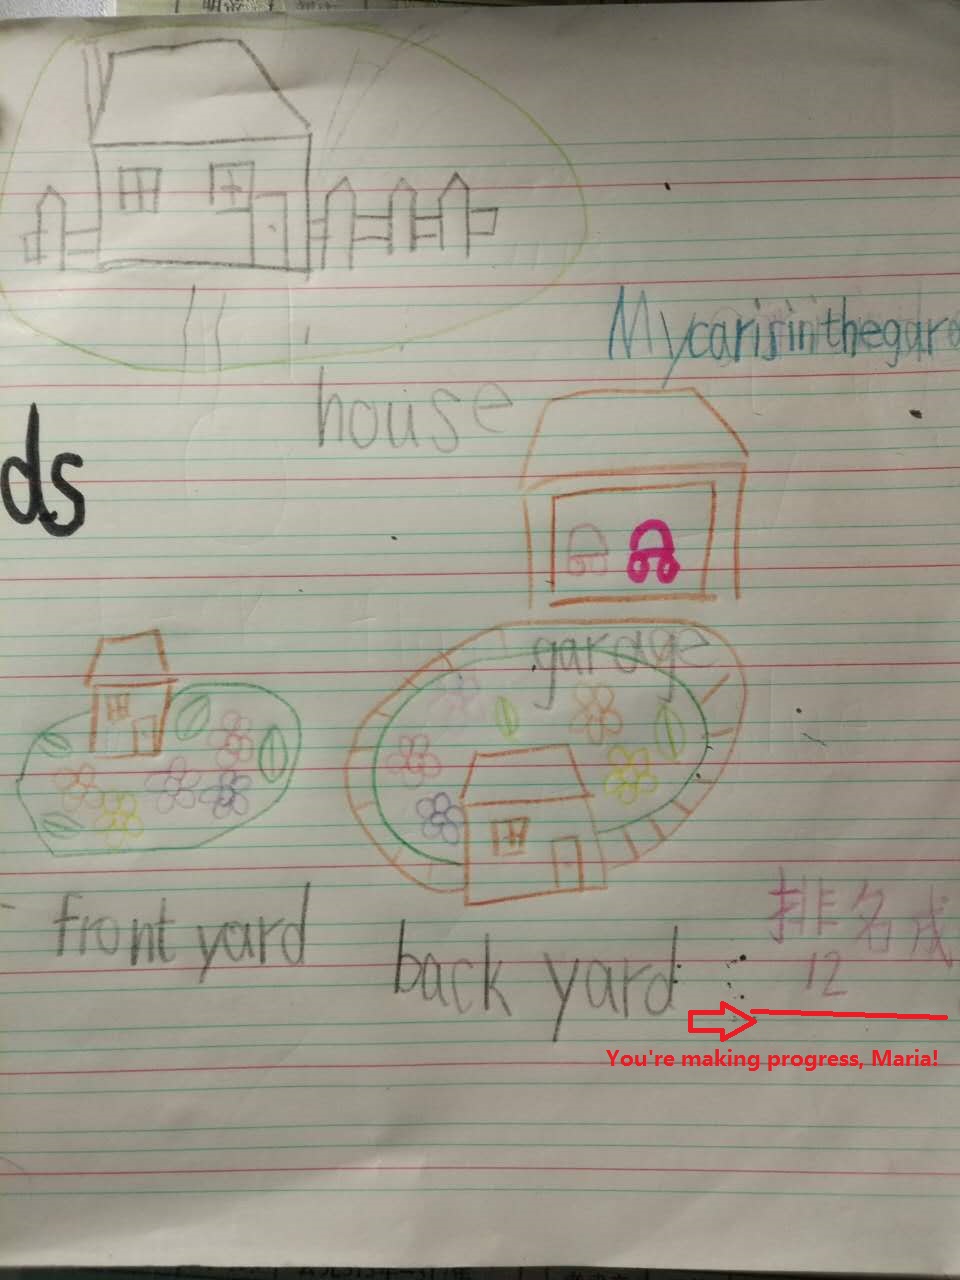 Mycarisinthegara
house
ds
garage
front yard
back yard
排名成
12
You're making progress, Maria!